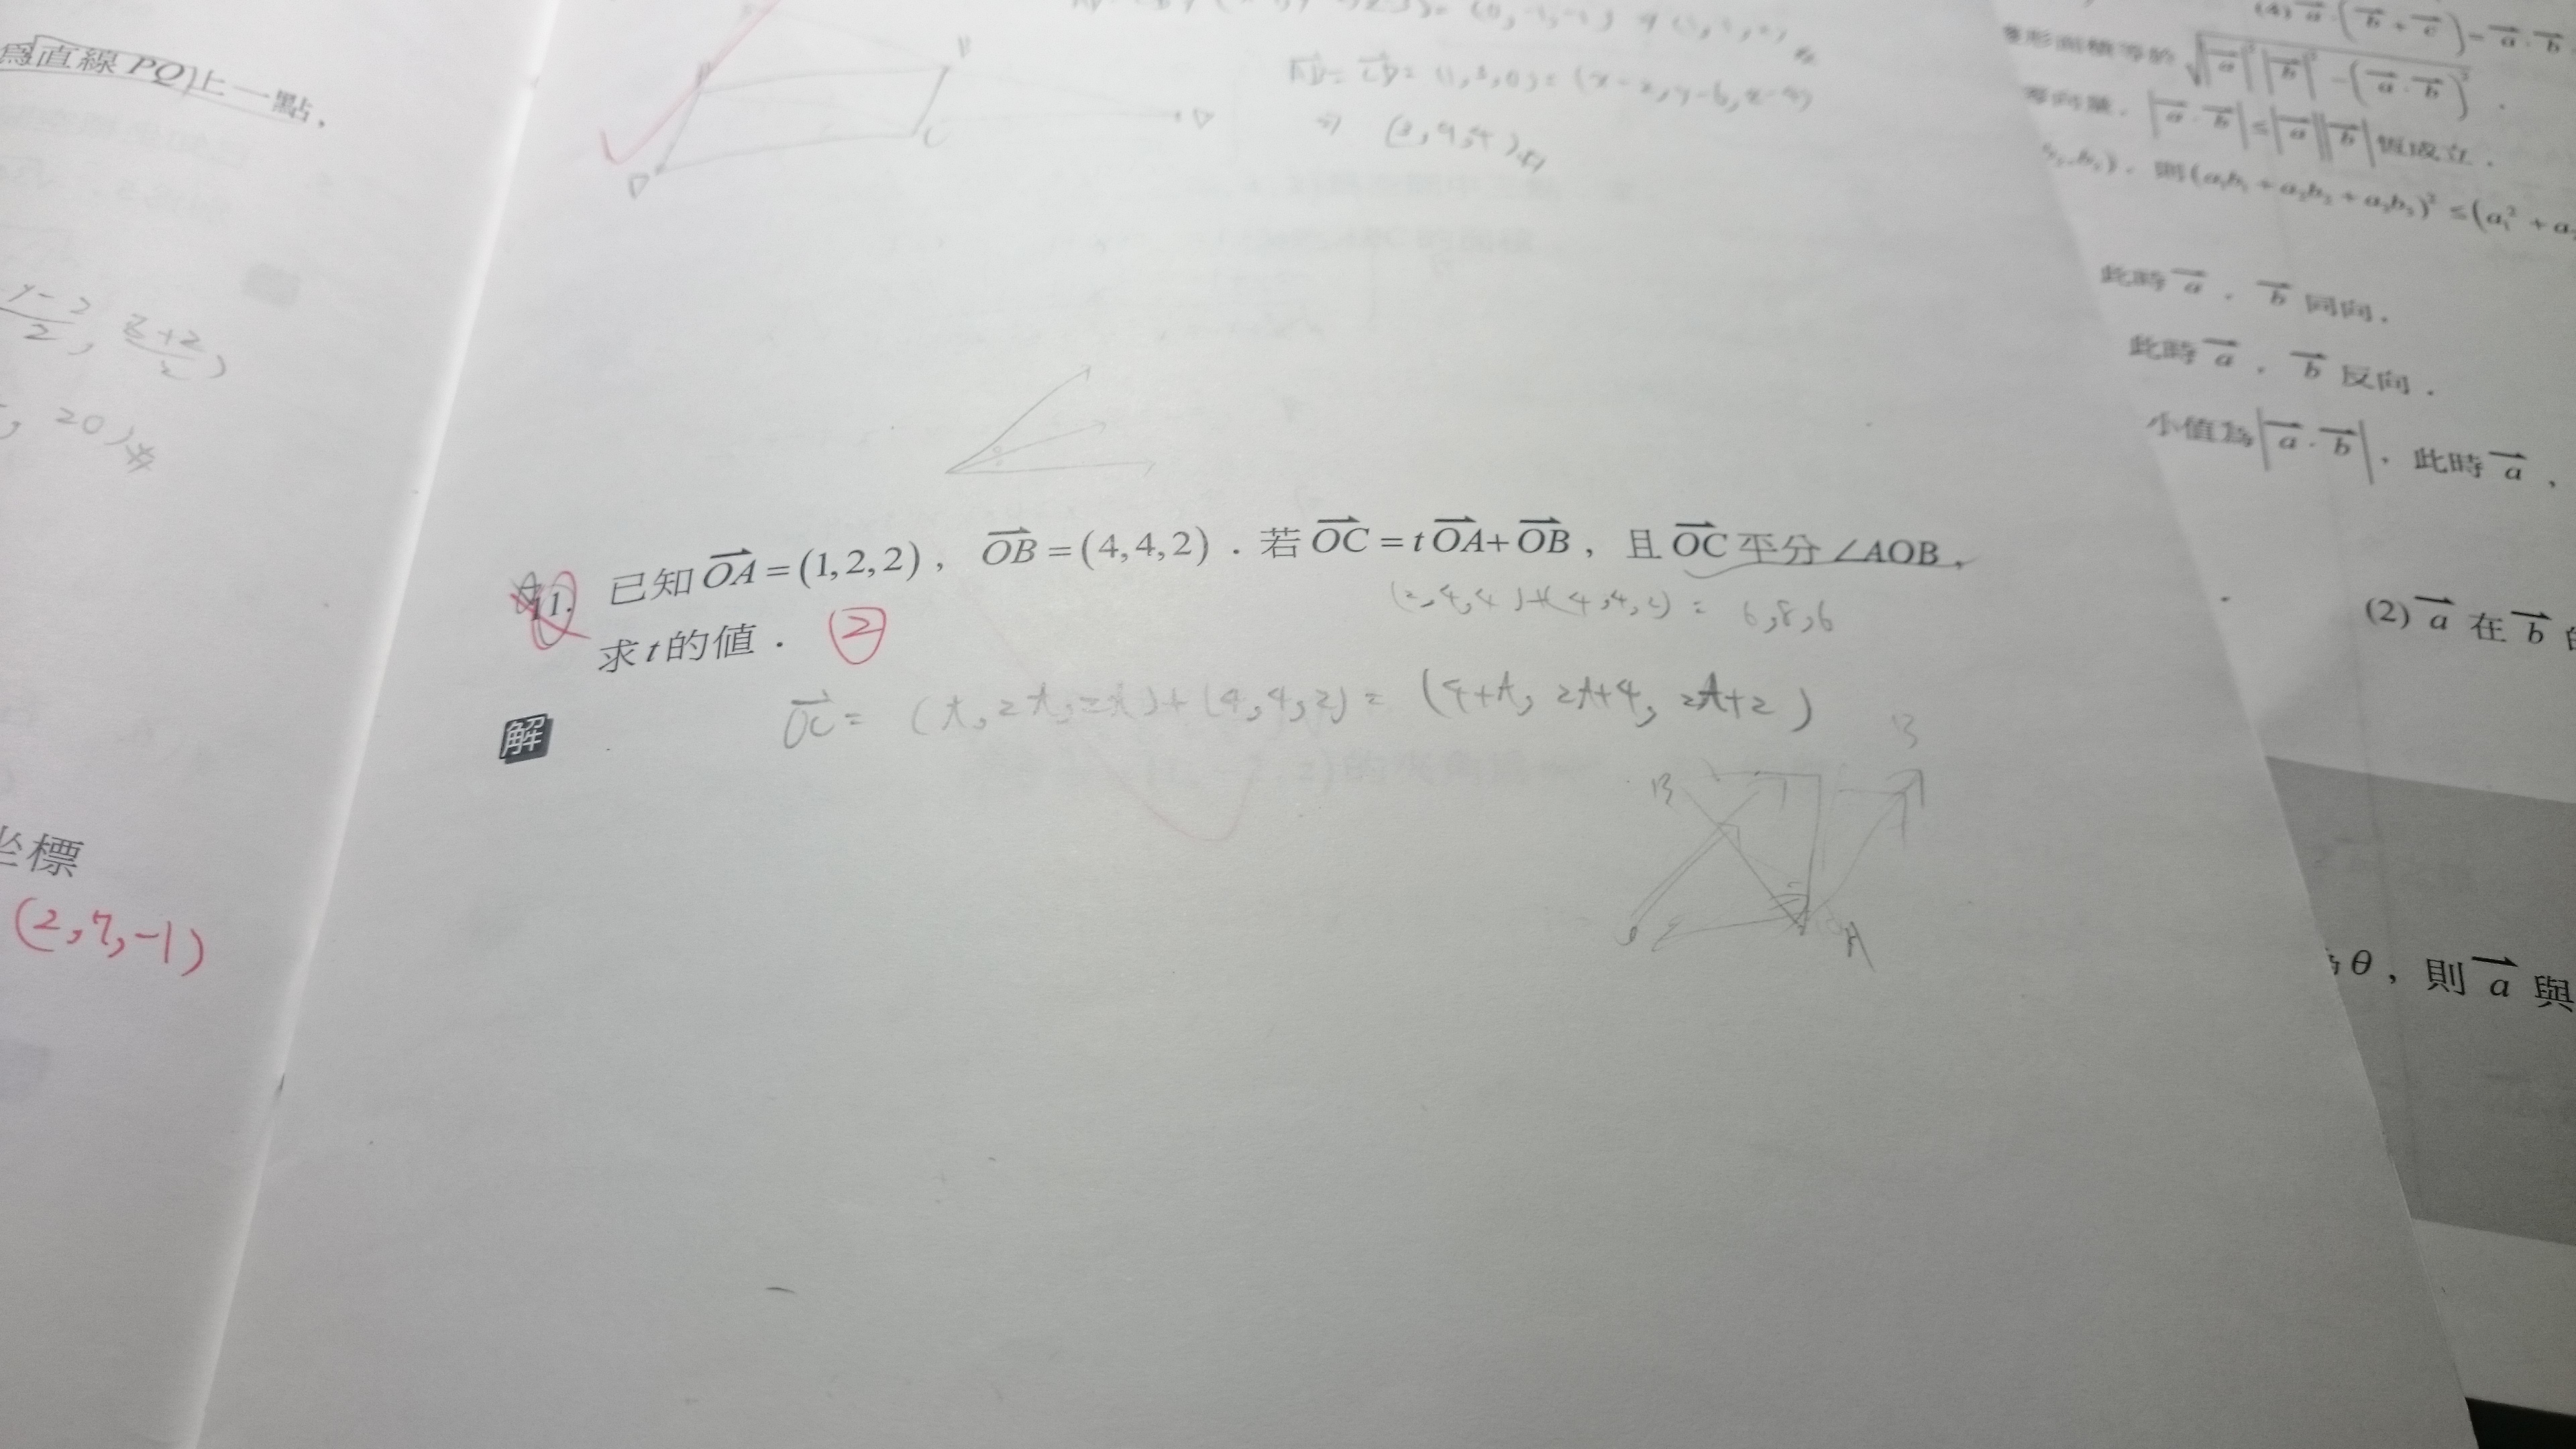 為直線PQ上一點．
y-2/2, z+2/2)
, 20)
坐標
(2,7,-1)
B
C
D
D
AD = CD = (1,3,0) = (x-2,y-6,z-4)
⇒ (3,9,4)
11. 已知OA=(1,2,2)，OB=(4,4,2)．若OC=tOA+OB，且OC平分∠AOB，
(2,4,4)+(4,4,2) = 6,8,6
求t的值． ②
解
OC = (t, 2t, 2t)+(4,4,2) = (4+t, 2t+4, 2t+2)
B
B
A
(4) a·(b+c)=a·b
形面積等於 √|a|²|b|²-(a·b)²．
零向量，|a·b|≤|a||b|恆成立．
，則(a₁b₁+a₂b₂+a₃b₃)²≤(a₁²+a
此時a，b同向．
此時a，b反向．
小值為|a·b|，此時a，
(2) a在b的
為θ，則a與